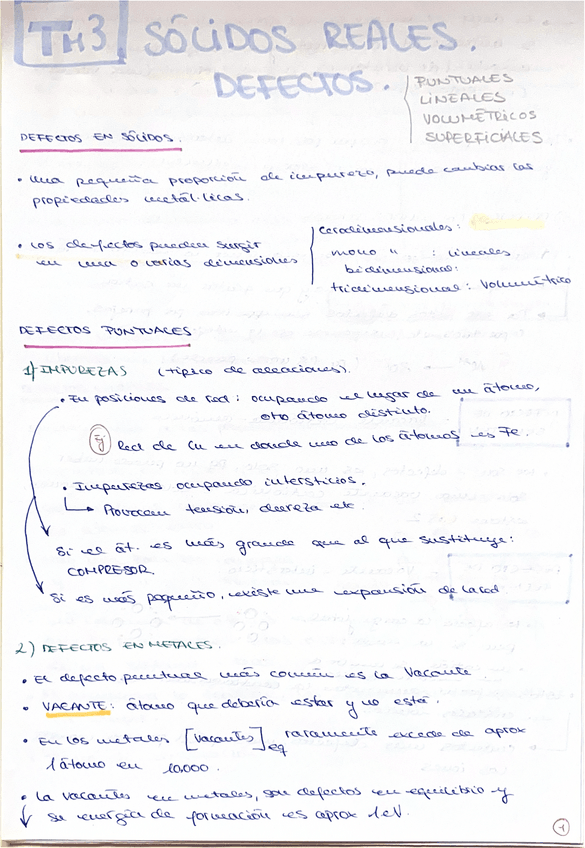 TM3 SÓLIDOS REALES.
DEFECTOS.
PUNTUALES
LINEALES
VOLUMÉTRICOS
SUPERFICIALES
DEFECTOS EN SÓLIDOS.
• Una pequeña proporción de impureza, puede cambiar las
propiedades metálicas.
• Los defectos pueden surgir
en una o varias dimensiones
cerodimensionales:
mono " : lineales
bidimensional:
tridimensional: Volumétrico
DEFECTOS PUNTUALES
1) IMPUREZAS (típico de aleaciones).
• En posiciones de red: ocupando el lugar de un átomo,
otro átomo distinto.
Ej Red de Cu en donde uno de los átomos es Fe.
• Impurezas ocupando intersticios.
Provocan tensión, dureza etc.
Si el át. es más grande que al que sustituye:
COMPRESOR.
Si es más pequeño, existe una expansión de la red.
2) DEFECTOS EN METALES.
• El defecto puntual más común es la Vacante.
• VACANTE: átomo que debería estar y no está.
• En los metales [Vacantes]eq raramente excede de aprox
1 átomo en 10.000.
• La vacantes en metales, son defectos en equilibrio y
su energía de formación es aprox 1 eV.
1